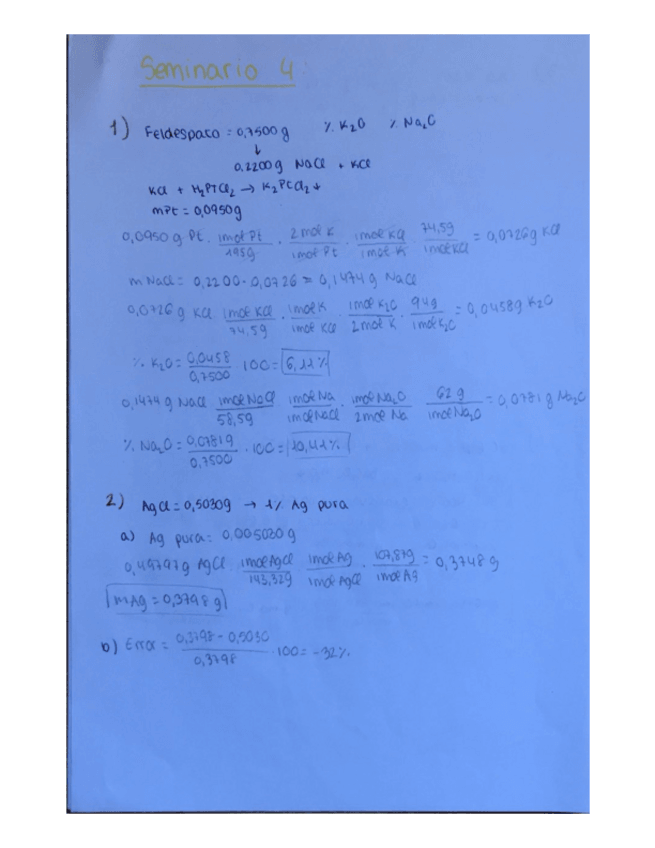 Seminario 4
1) Feldespato = 0,7500 g % K₂O % Na₂O
↓
0.2200 g NaCl + KCl
KCl + H₂PtCl₂ → K₂PtCl₂↓
mPt = 0,0950g
0,0950 g Pt · 1mol Pt/195g · 2 mol K/1mol Pt · 1mol KCl/1mol K · 74,5g/1mol KCl = 0,0726g KCl
m NaCl = 0,2200 - 0,0726 = 0,1474 g NaCl
0,0726 g KCl 1mol KCl/74,5g · 1mol K/1mol KCl · 1mol K₂O/2mol K · 94g/1mol K₂O = 0,0458g K₂O
% K₂O = 0,0458/0,7500 · 100 = 6,11%
0,1474 g NaCl 1mol NaCl/58,5g 1mol Na/1mol NaCl · 1mol Na₂O/2mol Na 62 g/1mol Na₂O = 0,0781 g Na₂O
% Na₂O = 0,0781g/0,7500 · 100 = 10,41%
2) AgCl = 0,5030g → 1% Ag pura
a) Ag pura = 0,005030 g
0,49797g AgCl 1mol AgCl/143,32g 1mol Ag/1mol AgCl · 107,87g/1mol Ag = 0,3748 g
mAg = 0,3798 g
b) Error = 0,3798 - 0,5030/0,3798 · 100 = -32%